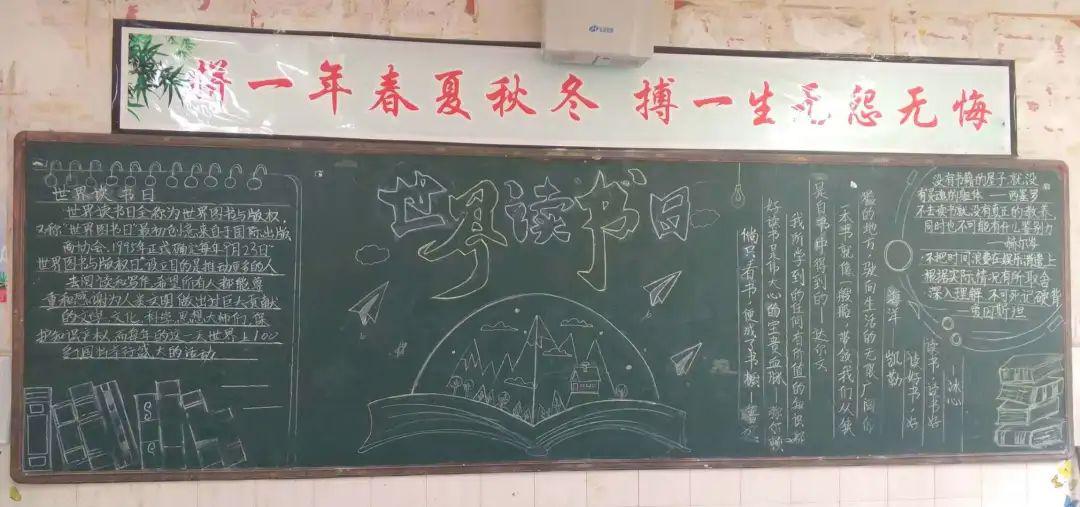 搏一年春夏秋冬 搏一生无怨无悔
世界读书日
世界读书日
世界读书日全称为世界图书与版权,
又称"世界图书日"最初创意来自于国际出版
商协会.1995年正式确定每年4月23日"
世界图书与版权日"设立目的是推动更多的人
去阅读和写作,希望所有人都能尊
重和感谢为人类文明做出过巨大贡献
的文学,文化,科学思想大师们,保
护知识产权.而每年的这一天世界上100
多个国家举行盛大的活动.
没有书籍的屋子,就没
有灵魂的躯体——西塞罗
不去读书就没有真正的教养,
同时也不可能有什么鉴别力
——赫尔岑
·不把时间浪费在娱乐消遣上
根据实际情况有所取舍
深入理解 不可死记硬背
——爱因斯坦
读书·读书好
读好书·好
——冰心
一本书就像一艘船,带领我们从狭
隘的地方,驶向生活的无限广阔的
海洋
凯勒
我所学到的任何有价值的知识都
是自书中得到的——达尔文
好读书是伟大心的宝贵血脉——弥尔顿
倘只看书,便成了书橱——鲁迅